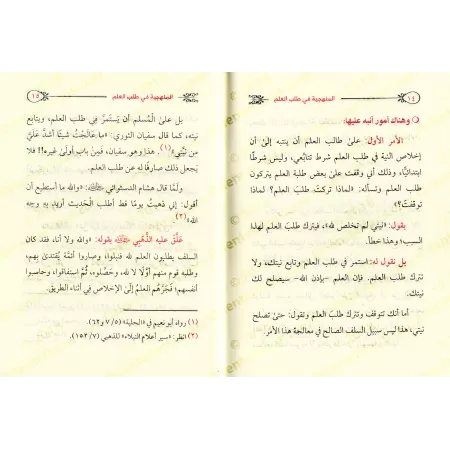 ١٤
المنهجية في طلب العلم
وهناك أمور أنبه عليها:
الأمر الأول: على طالب العلم أن ينتبه إلى أن
إخلاص النية في طلب العلم شرط تتابُعي، وليس شرطًا
ابتدائيًّا، وذلك أني وقفت على بعض طلبة العلم يتركون
طلب العلم وتسأله: لماذا تركتَ طلبَ العلم؟ لماذا
توقفتَ؟
يقول: «نيتي لم تخلص لله»، فيترك طلبَ العلم لهذا
السبب؛ وهذا خطأ.
بل نقول له: استمر في طلب العلم وتابع نيتك، ولا
تترك طلبَ العلم. فإن العلم –بإذن الله– سيصلح لك
نيتك.
أما أنك تتوقف وتترك طلبَ العلم وتقول: حتىٰ تصلح
نيتي، هذا ليس سبيل السلف الصالح في معالجة هذا الأمر.
المنهجية في طلب العلم
١٥
بل علىٰ المُسلم أن يَستمرَّ في طلب العلم، ويتابع
نيته، كما قال سفيان الثوري: «ما عَالَجْتُ شيئًا أشدَّ عَلَيَّ
من نِيَّتِي»(١). هذا وهو سفيان، فمِنْ باب أولىٰ غيره!! فلا
يَجعل ذلك صارفًا له عن طلب العلم.
ولمَّا قال هشام الدستوائي: «والله ما أستطيع أن
أقول: إني ذهبتُ يومًا قط أطلب الْحَديث أريد به وجه
الله»(٢)
علَّق عليه الذَّهبي بقوله: «والله ولا أنا، فقد كان
السلف يطلبون العلم لله فنبلوا، وصاروا أئمةً يُقتدىٰ بِهم،
وطلبه قوم منهم أوَّلًا لا لله، وحَصَّلوه، ثُمَّ استفاقوا، وحاسبوا
أنفسهم؛ فَجَرَّهُم العلمُ إلىٰ الإخلاص في أثناء الطريق.
(١) رواه أبو نعيم في «الحلية» (٧/٥ و٦٢).
(٢) انظر: «سير أعلام النبلاء» للذهبي (٧/ ١٥٢)